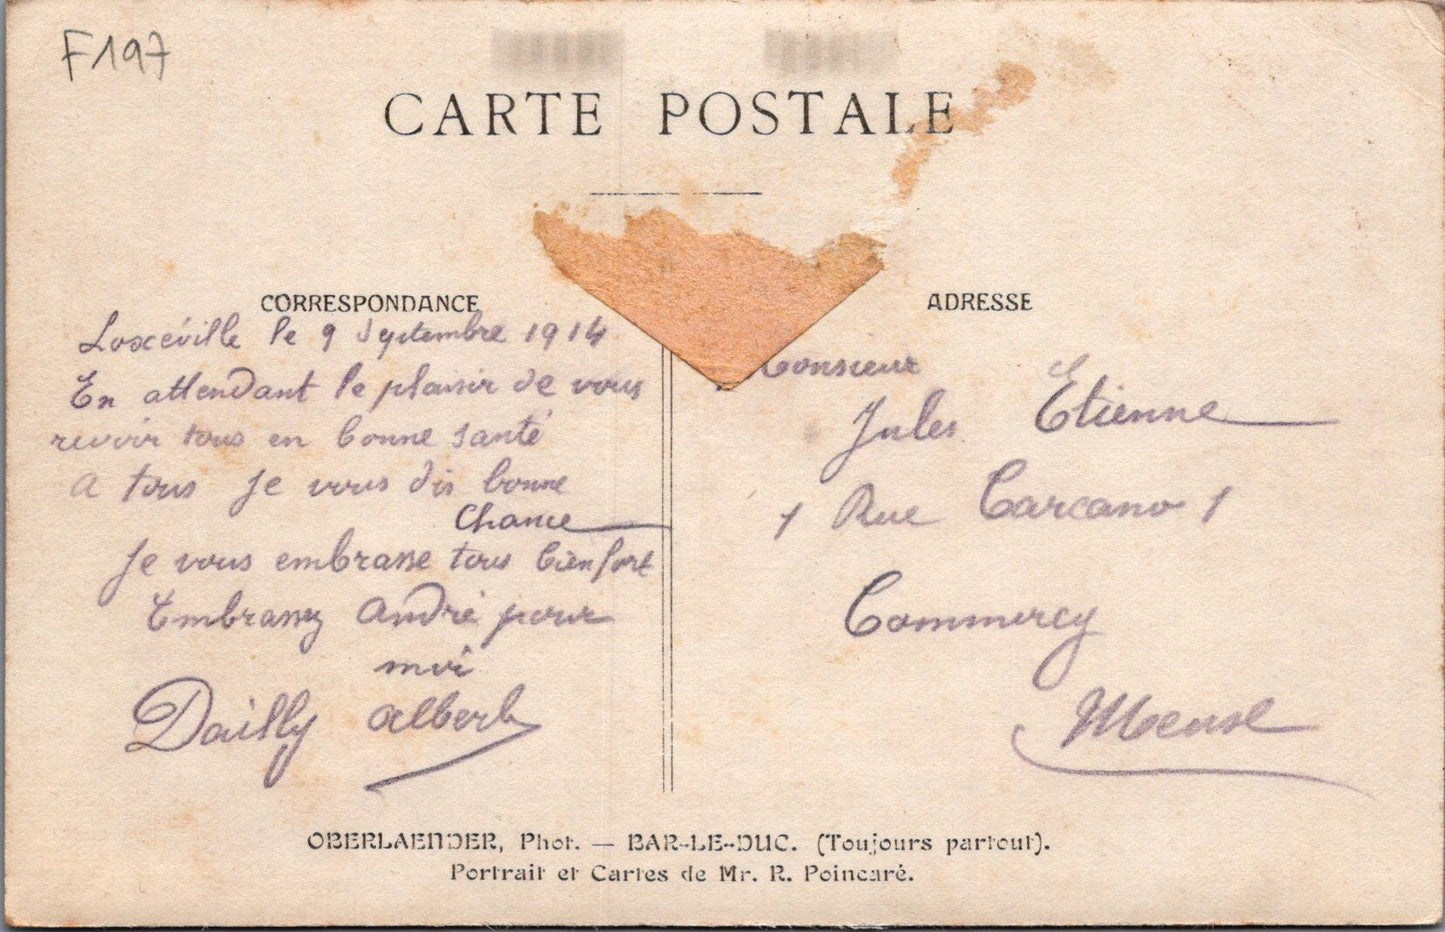 F197
CARTE POSTALE
CORRESPONDANCE
Loxéville le 9 Septembre 1914
En attendant le plaisir de vous
revoir tous en bonne santé
A tous je vous dis bonne
Chance
Je vous embrasse tous bien fort
Embrassez André pour
moi
Dailly Albert
ADRESSE
Monsieur
Jules Etienne
1 Rue Carcano 1
Commercy
Meuse
OBERLAENDER, Phot. — BAR-LE-DUC. (Toujours partout).
Portrait et Cartes de Mr. R. Poincaré.